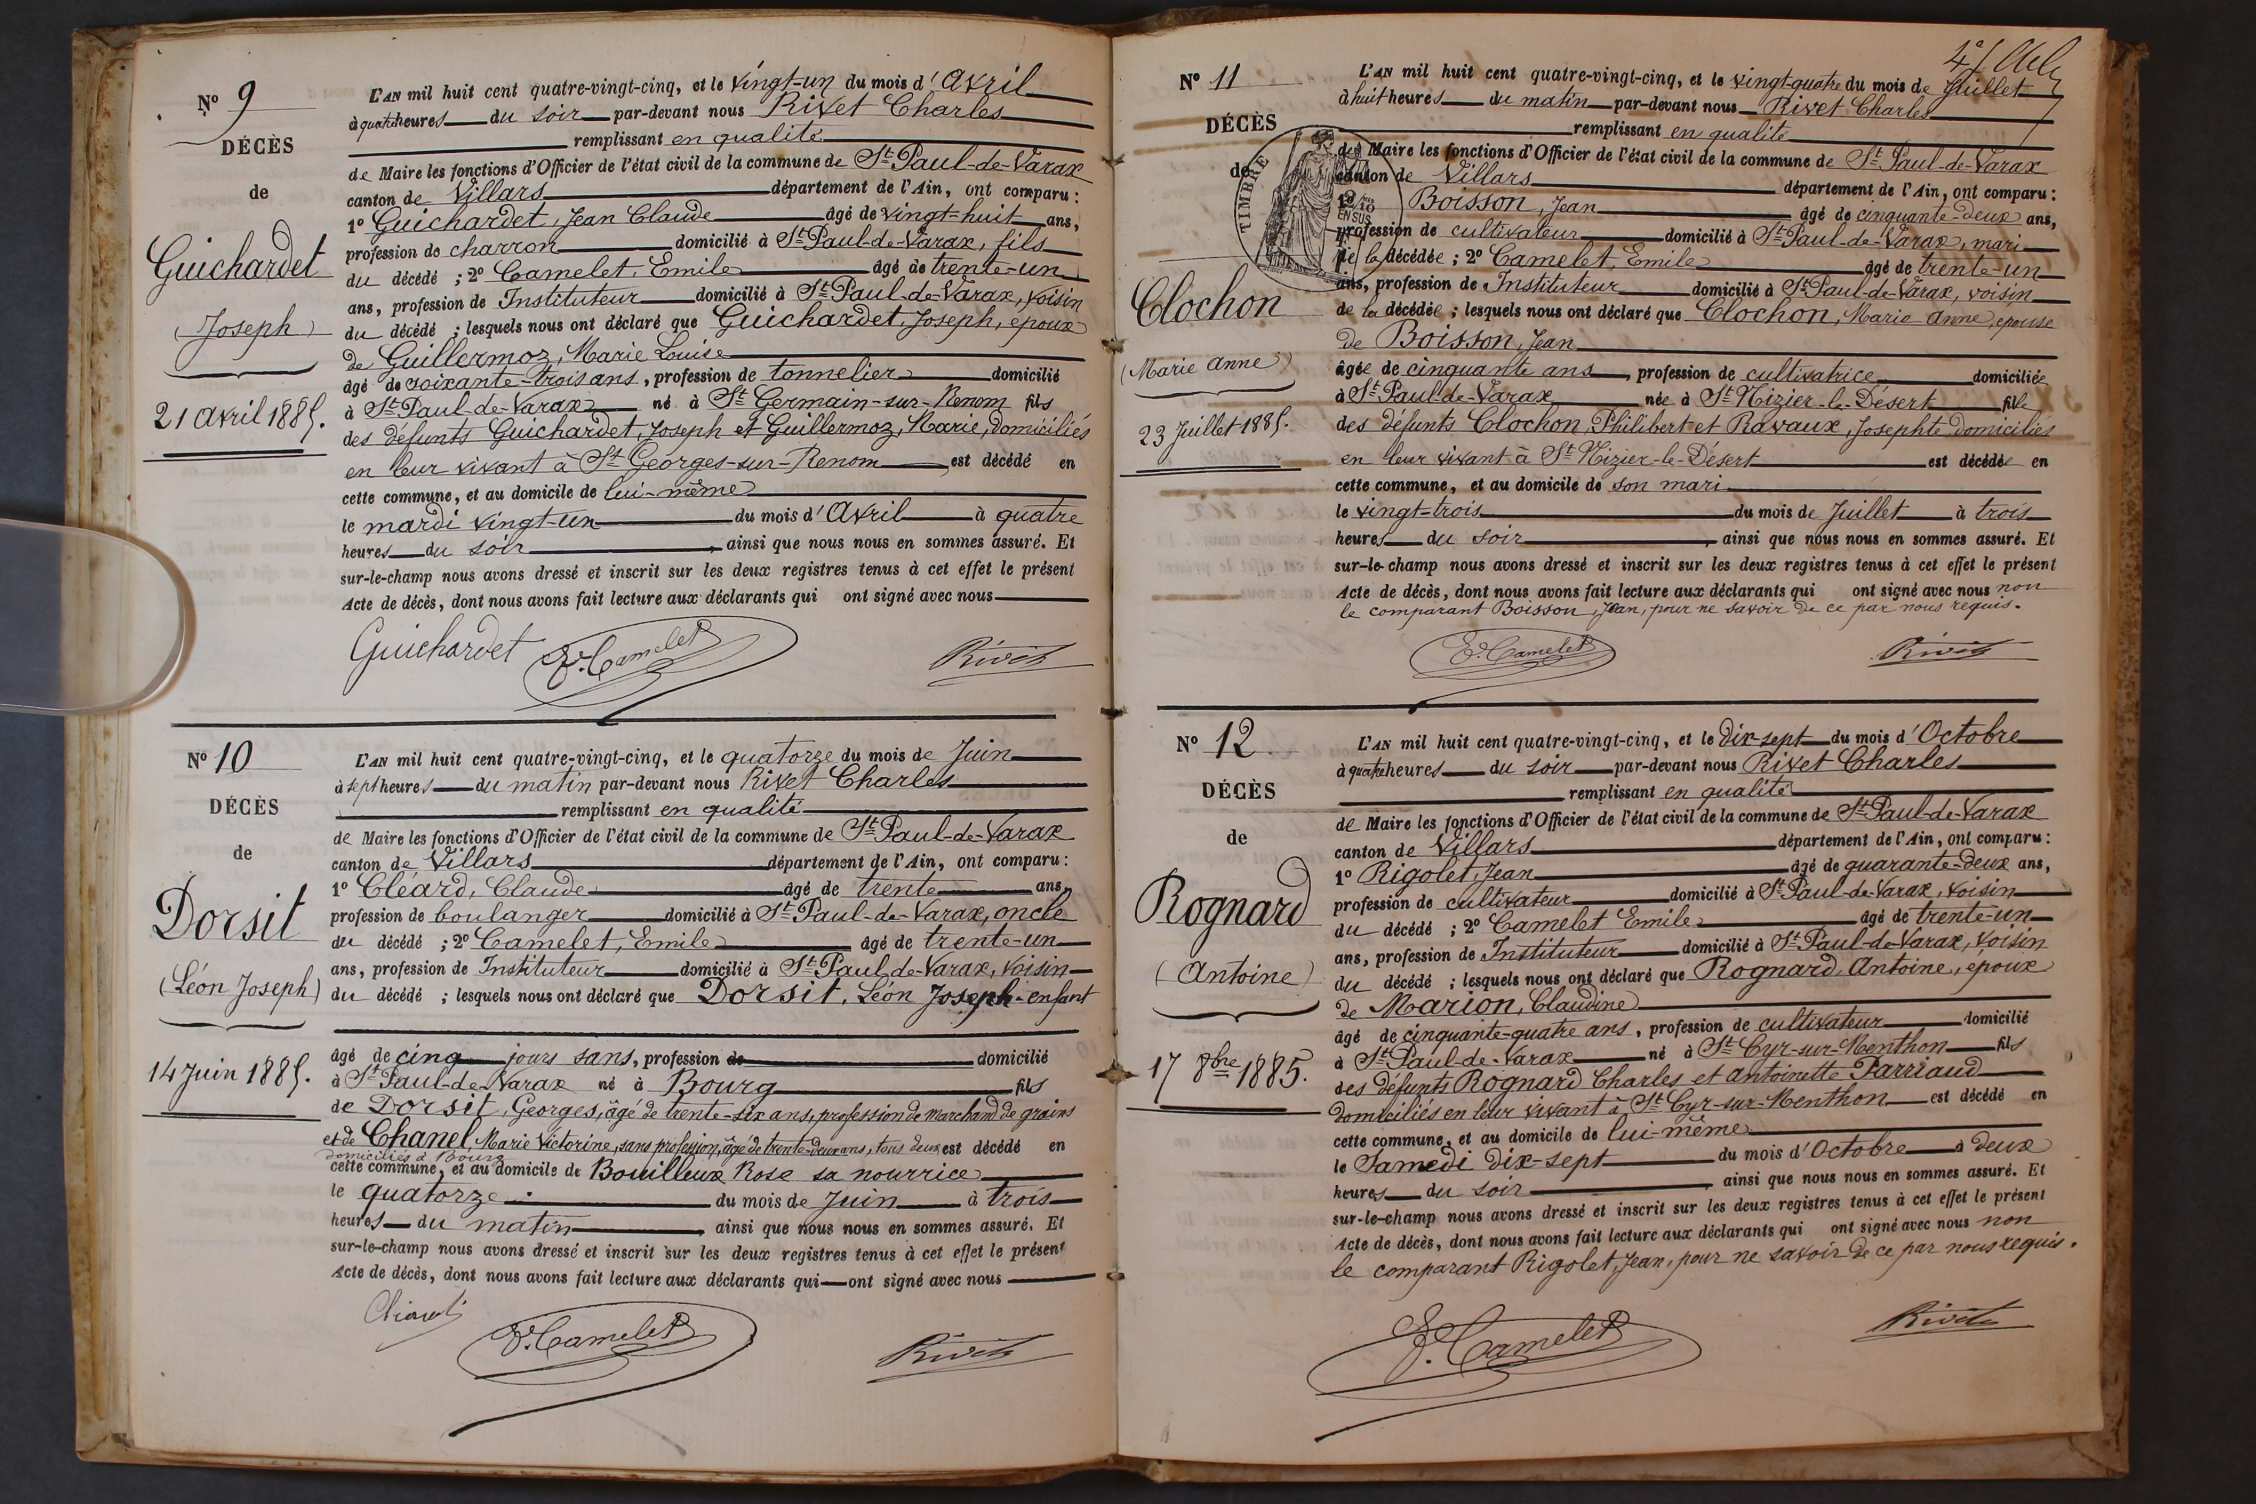 Nº 9
DÉCÈS
de
Guichardet
(Joseph)
21 Avril 1885.
L'AN mil huit cent quatre-vingt-cinq, et le vingt-un du mois d'Avril
à quatre heures du soir par-devant nous Rivet Charles
remplissant en qualité
de Maire les fonctions d'Officier de l'état civil de la commune de St Paul-de-Varax
canton de Villars département de l'Ain, ont comparu :
1º Guichardet, Jean Claude âgé de vingt-huit ans,
profession de charron domicilié à St Paul-de-Varax, fils
du décédé ; 2º Camelet, Emile âgé de trente-un
ans, profession de Instituteur domicilié à St Paul-de-Varax, voisin
du décédé ; lesquels nous ont déclaré que Guichardet, Joseph, époux
de Guillermoz, Marie Louise
âgé de soixante-trois ans, profession de tonnelier domicilié
à St Paul-de-Varax né à St Germain-sur-Renom fils
des défunts Guichardet, Joseph et Guillermoz, Marie, domiciliés
en leur vivant à St Georges-sur-Renom est décédé en
cette commune, et au domicile de lui-même
le mardi vingt-un du mois d'Avril à quatre
heures du soir, ainsi que nous nous en sommes assuré. Et
sur-le-champ nous avons dressé et inscrit sur les deux registres tenus à cet effet le présent
Acte de décès, dont nous avons fait lecture aux déclarants qui ont signé avec nous
Guichardet E. Camelet Rivet
Nº 10
DÉCÈS
de
Dorsit
(Léon Joseph)
14 Juin 1885.
L'AN mil huit cent quatre-vingt-cinq, et le quatorze du mois de Juin
à sept heures du matin par-devant nous Rivet Charles
remplissant en qualité
de Maire les fonctions d'Officier de l'état civil de la commune de St Paul-de-Varax
canton de Villars département de l'Ain, ont comparu :
1º Cléard, Claude âgé de trente ans,
profession de boulanger domicilié à St Paul-de-Varax, oncle
du décédé ; 2º Camelet, Emile âgé de trente-un
ans, profession de Instituteur domicilié à St Paul-de-Varax, voisin
du décédé ; lesquels nous ont déclaré que Dorsit, Léon Joseph enfant
âgé de cinq jours sans, profession de domicilié
à St Paul-de-Varax né à Bourg fils
de Dorsit, Georges, âgé de trente-six ans, profession de marchand de grains
et de Chanel, Marie Victorine, sans profession, âgé de trente-deux ans, tous deux est décédé en
domiciliés à Bourg
cette commune, et au domicile de Bouilleux Rose sa nourrice
le quatorze du mois de Juin à trois
heures du matin, ainsi que nous nous en sommes assuré. Et
sur-le-champ nous avons dressé et inscrit sur les deux registres tenus à cet effet le présent
Acte de décès, dont nous avons fait lecture aux déclarants qui ont signé avec nous
E. Camelet Rivet
Nº 11
DÉCÈS
de
TIMBRE
2/10
EN SUS
Clochon
(Marie Anne)
23 Juillet 1885.
L'AN mil huit cent quatre-vingt-cinq, et le vingt-quatre du mois de Juillet
à huit heures du matin par-devant nous Rivet Charles
remplissant en qualité
de Maire les fonctions d'Officier de l'état civil de la commune de St Paul-de-Varax
canton de Villars département de l'Ain, ont comparu :
1º Boisson, Jean âgé de cinquante-deux ans,
profession de cultivateur domicilié à St Paul-de-Varax, mari
de la décédée ; 2º Camelet, Emile âgé de trente-un
ans, profession de Instituteur domicilié à St Paul-de-Varax, voisin
de la décédée ; lesquels nous ont déclaré que Clochon, Marie Anne, épouse
de Boisson, Jean
âgée de cinquante ans, profession de cultivatrice domiciliée
à St Paul-de-Varax née à St Nizier-le-Désert fille
des défunts Clochon, Philibert et Ravaux, Josephte domiciliés
en leur vivant à St Nizier-le-Désert est décédée en
cette commune, et au domicile de son mari
le vingt-trois du mois de Juillet à trois
heures du soir, ainsi que nous nous en sommes assuré. Et
sur-le-champ nous avons dressé et inscrit sur les deux registres tenus à cet effet le présent
Acte de décès, dont nous avons fait lecture aux déclarants qui ont signé avec nous non
le comparant Boisson, Jean, pour ne savoir de ce par nous requis.
E. Camelet Rivet
Nº 12
DÉCÈS
de
Rognard
(Antoine)
17 8bre 1885.
L'AN mil huit cent quatre-vingt-cinq, et le dix-sept du mois d'Octobre
à quatre heures du soir par-devant nous Rivet Charles
remplissant en qualité
de Maire les fonctions d'Officier de l'état civil de la commune de St Paul-de-Varax
canton de Villars département de l'Ain, ont comparu :
1º Rigolet, Jean âgé de quarante-deux ans,
profession de cultivateur domicilié à St Paul-de-Varax, voisin
du décédé ; 2º Camelet Emile âgé de trente-un
ans, profession de Instituteur domicilié à St Paul-de-Varax, voisin
du décédé ; lesquels nous ont déclaré que Rognard, Antoine, époux
de Marion, Claudine
âgé de cinquante-quatre ans, profession de cultivateur domicilié
à St Paul-de-Varax né à St Cyr-sur-Menthon fils
des défunts Rognard Charles et Antoinette Parriaud
domiciliés en leur vivant à St Cyr-sur-Menthon est décédé en
cette commune, et au domicile de lui-même
le Samedi dix-sept du mois d'Octobre à deux
heures du soir, ainsi que nous nous en sommes assuré. Et
sur-le-champ nous avons dressé et inscrit sur les deux registres tenus à cet effet le présent
Acte de décès, dont nous avons fait lecture aux déclarants qui ont signé avec nous non
le comparant Rigolet, Jean, pour ne savoir de ce par nous requis.
E. Camelet Rivet